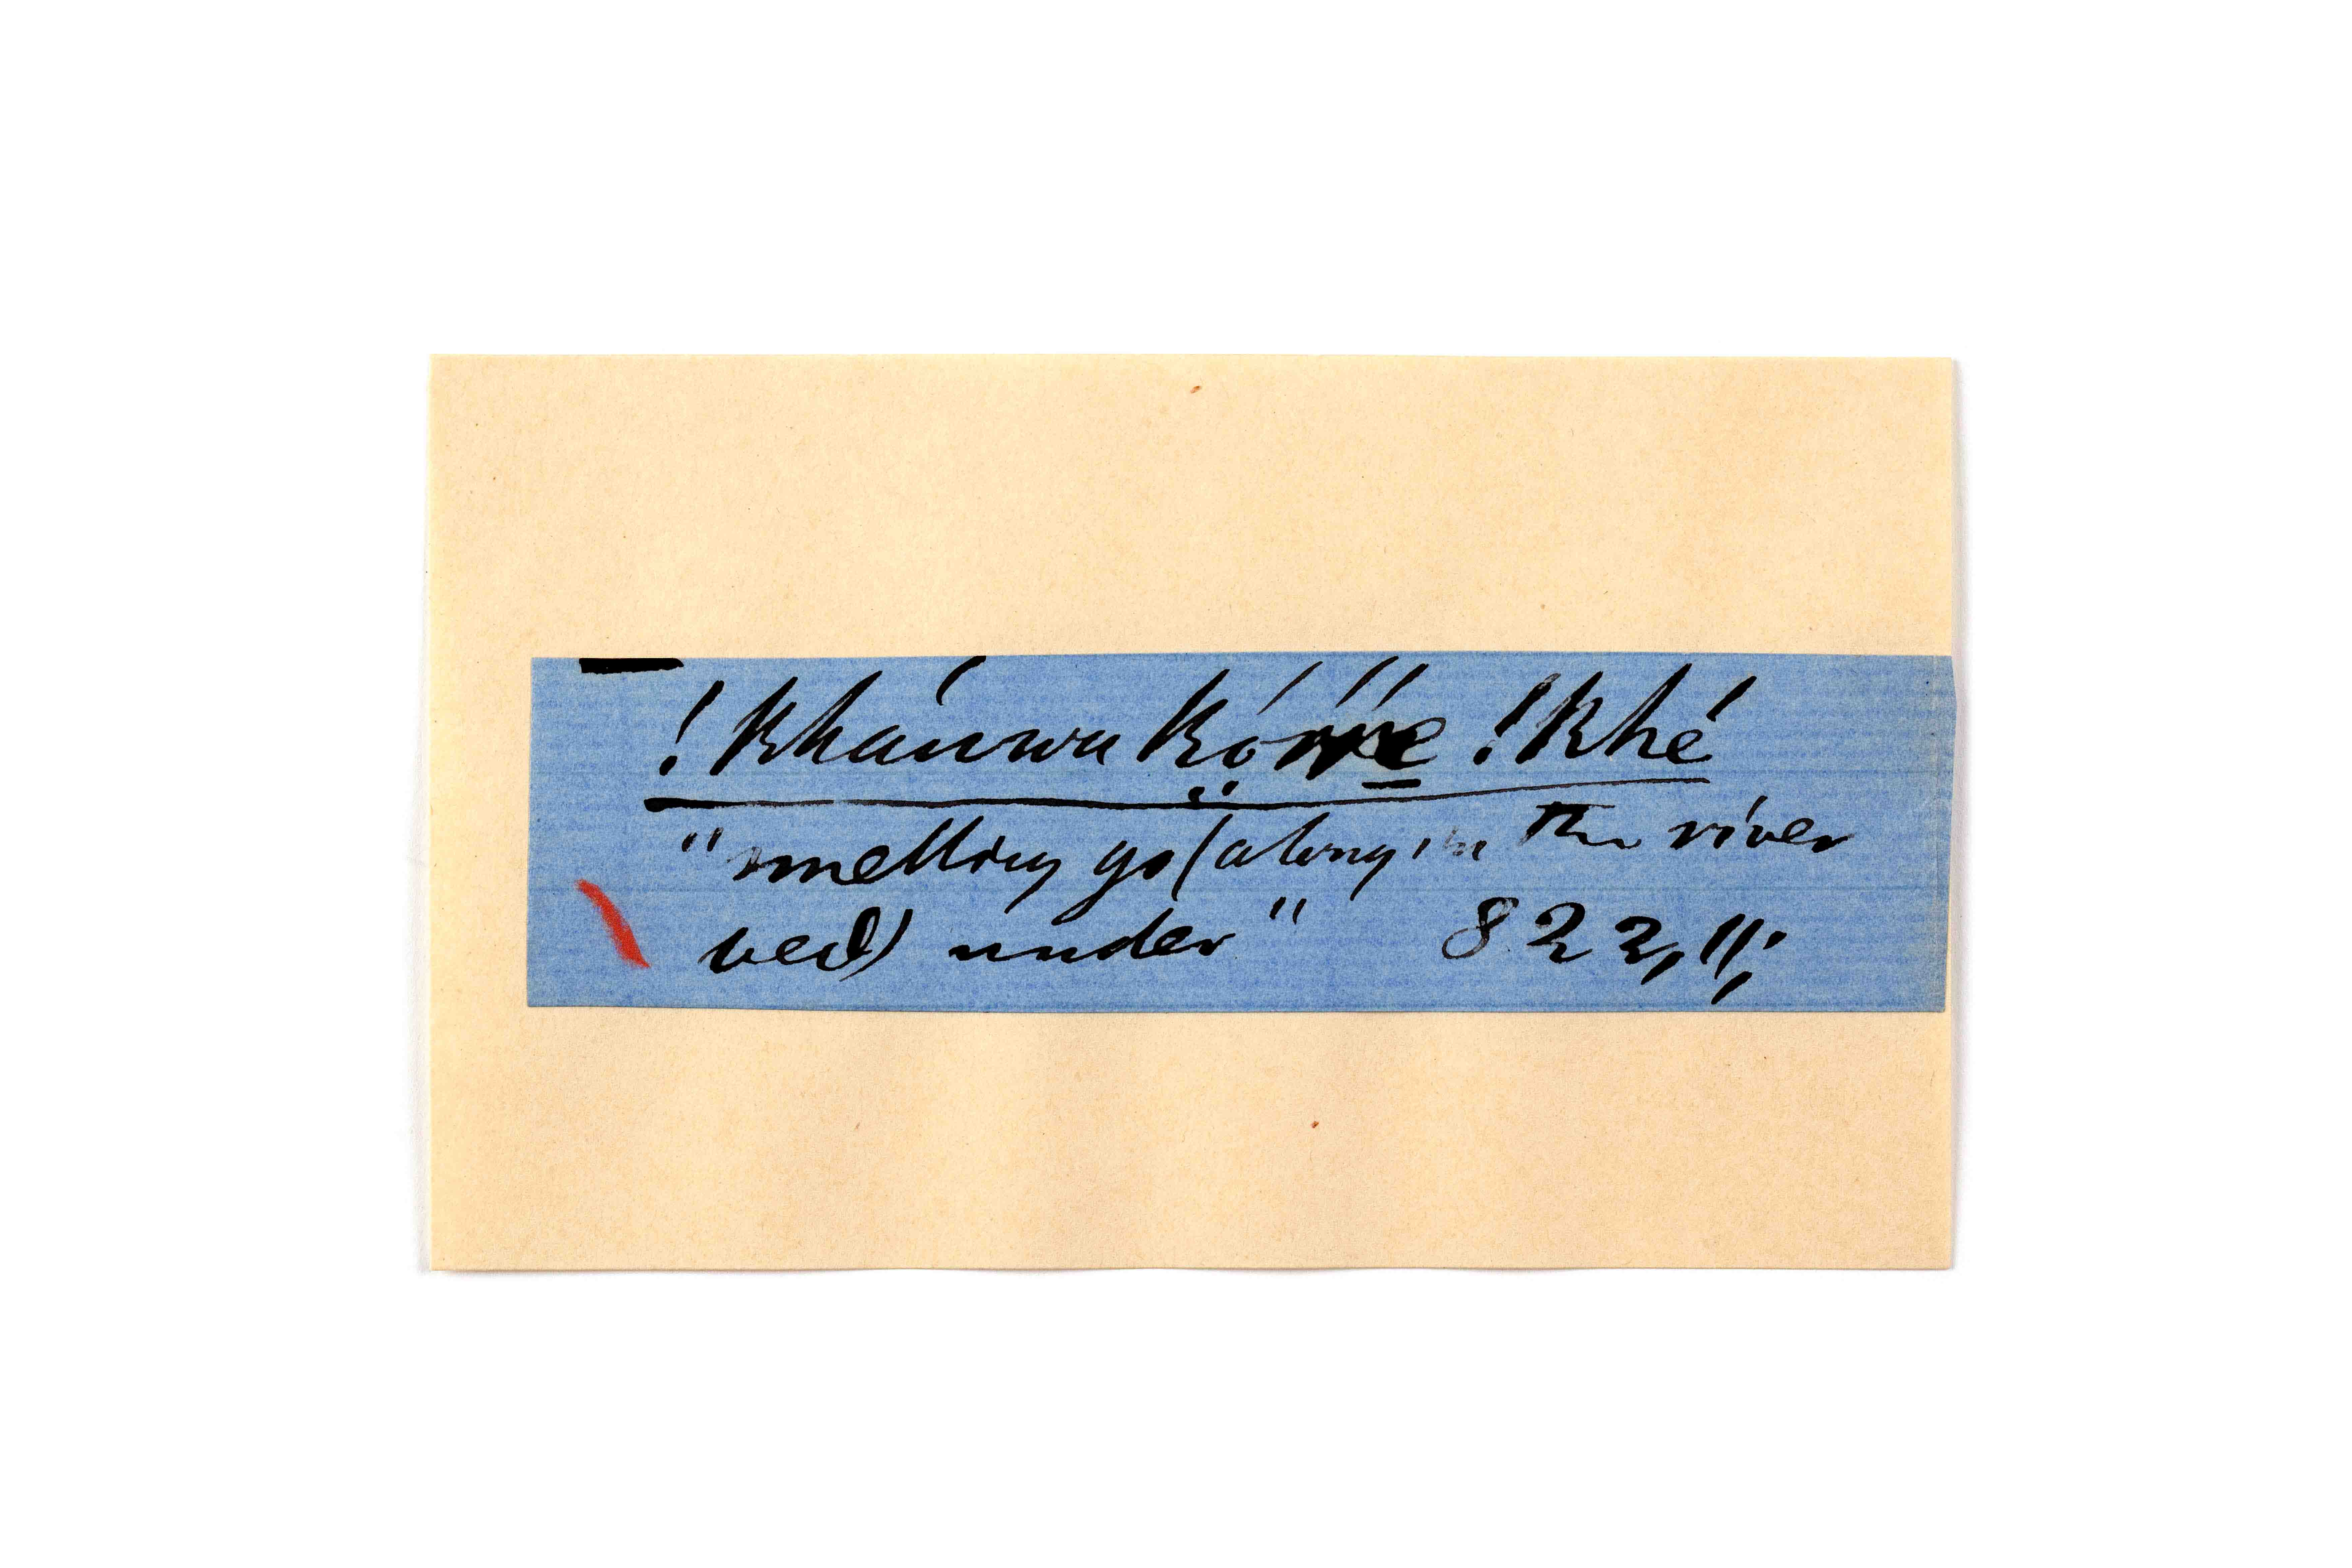 ! Kháuwa !Khé
"smelling go (along in the river
bed) under" 822, 11;